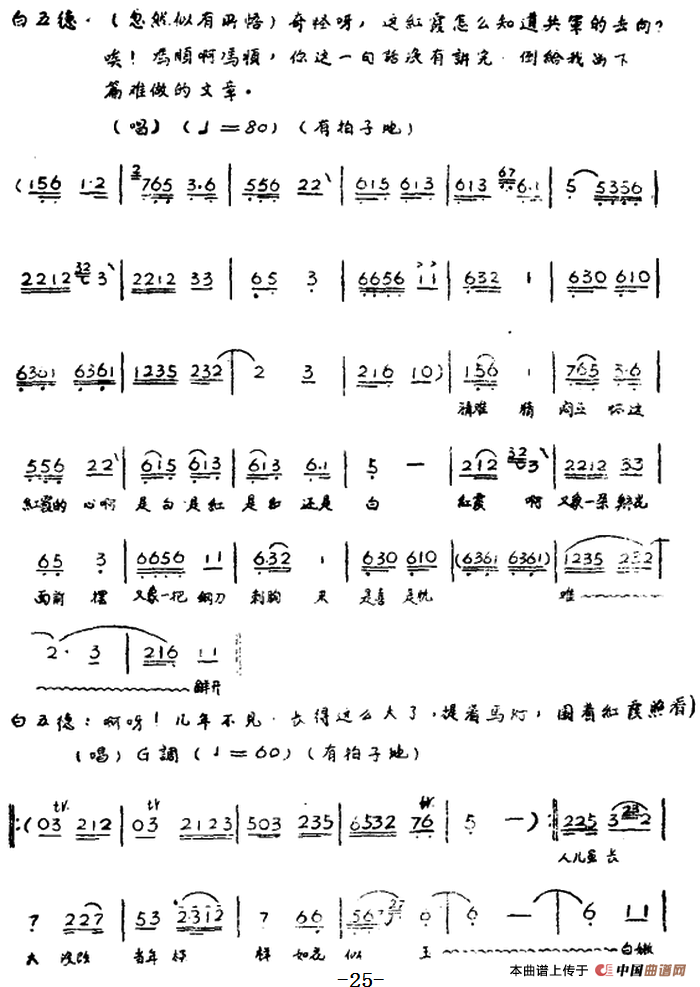 白五德：（忽然似有所悟）奇怪呀，这紅霞怎么知道共軍的去向？
唉！馮順啊馮順，你这一句話沒有講完·倒給我出下
篇难做的文章。
（唱）（♩=80）（有拍子地）
（156 1·2 | 2765 3·6 | 556 22 | 615 613 | 613 67 6·1 | 5 5356 |
2212 32 3 | 2212 33 | 65 3 | 6656 11 | 632 1 | 630 610 |
6361 6361 | 1235 232 | 2 3 | 216 10） | 156 1 | 765 3·6 |
猜难 猜 闷
556 22 | 615 613 | 613 6·1 | 5 — | 212 32 3 | 2212 33 |
紅霞的 心啊 是白 是紅 是紅 还是 白 紅霞 啊 又象一朵 鲜花
65 3 | 6656 11 | 632 1 | 630 610 | （6361 6361） | 1235 232
面前 摆 又象一把 鋼刀 刺胸 来 是喜 是忧 难
2· 3 | 216 11
解开
白五德：啊呀！几年不见·长得这么大了，提着马灯，围着紅霞照看）
（唱）G調（♩=60）（有拍子地）
（03 212 | 03 2123 | 503 235 | 6532 76 | 5 —） 225 3 23 2
人儿虽 长
7 227 | 53 2·312 | 7 66 | 567 27 6 | 6 — | 6 11
大 没改 当年 样 如花 似 玉 白嫩
-25-
本曲谱上传于 中国曲谱网